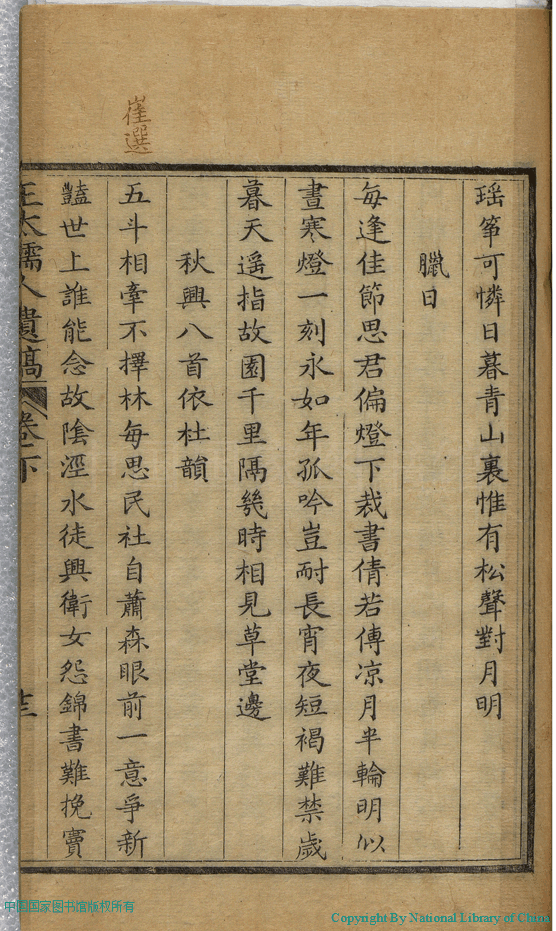 崔選
瑶箏可憐日暮青山裏惟有松聲對月明
臘日
每逢佳節思君偏燈下裁書倩若傳凉月半輪明似
晝寒燈一刻永如年孤吟豈耐長宵夜短褐難禁歲
暮天遥指故園千里隔幾時相見草堂邊
秋興八首依杜韻
五斗相牽不擇林每思民社自蕭森眼前一意爭新
豔世上誰能念故陰涇水徒興衛女怨錦書難挽竇
王太孺人遺稿 卷下 十三
中国国家图书馆版权所有
Copyright By National Library of China